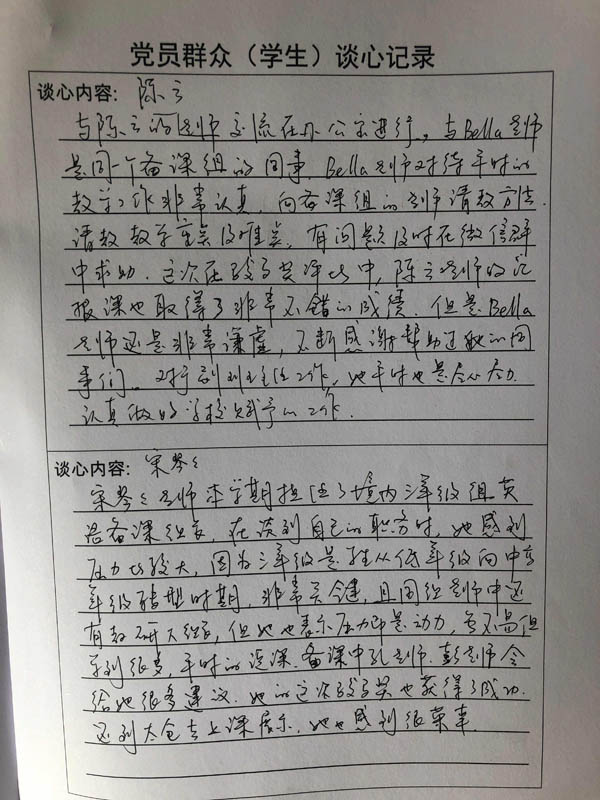 党员群众（学生）谈心记录
谈心内容： 陈云
与陈云的老师交流在办公室进行，与Bella老师
是同一个备课组的同事．Bella老师对待平时的
教学工作非常认真，向备课组的老师请教方法．
请教教学重点及难点，有问题及时在微信群
中求助．这次在骏马奖评比中，陈云老师的汇
报课也取得了非常不错的成绩．但是Bella
老师还是非常谦虚，不断感谢帮助过她的同
事们。对于副班主任工作，她平时也是尽心尽力．
认真做好学校赋予的工作．
谈心内容： 宋琴
宋琴老师本学期担任了境内三年级组英
语备课组长，在谈到自己的职务时，她感到
压力比较大，因为三年级是学生从低年级向中高
年级转型时期，非常关键，且同组老师中还
有教研大组长，但她也表示压力即是动力，
学到很多，平时的说课．备课中孔老师．彭老师会
给她很多建议．她的这次骏马奖也获得了成功．
还到太仓去上课展示，她也感到很荣幸．